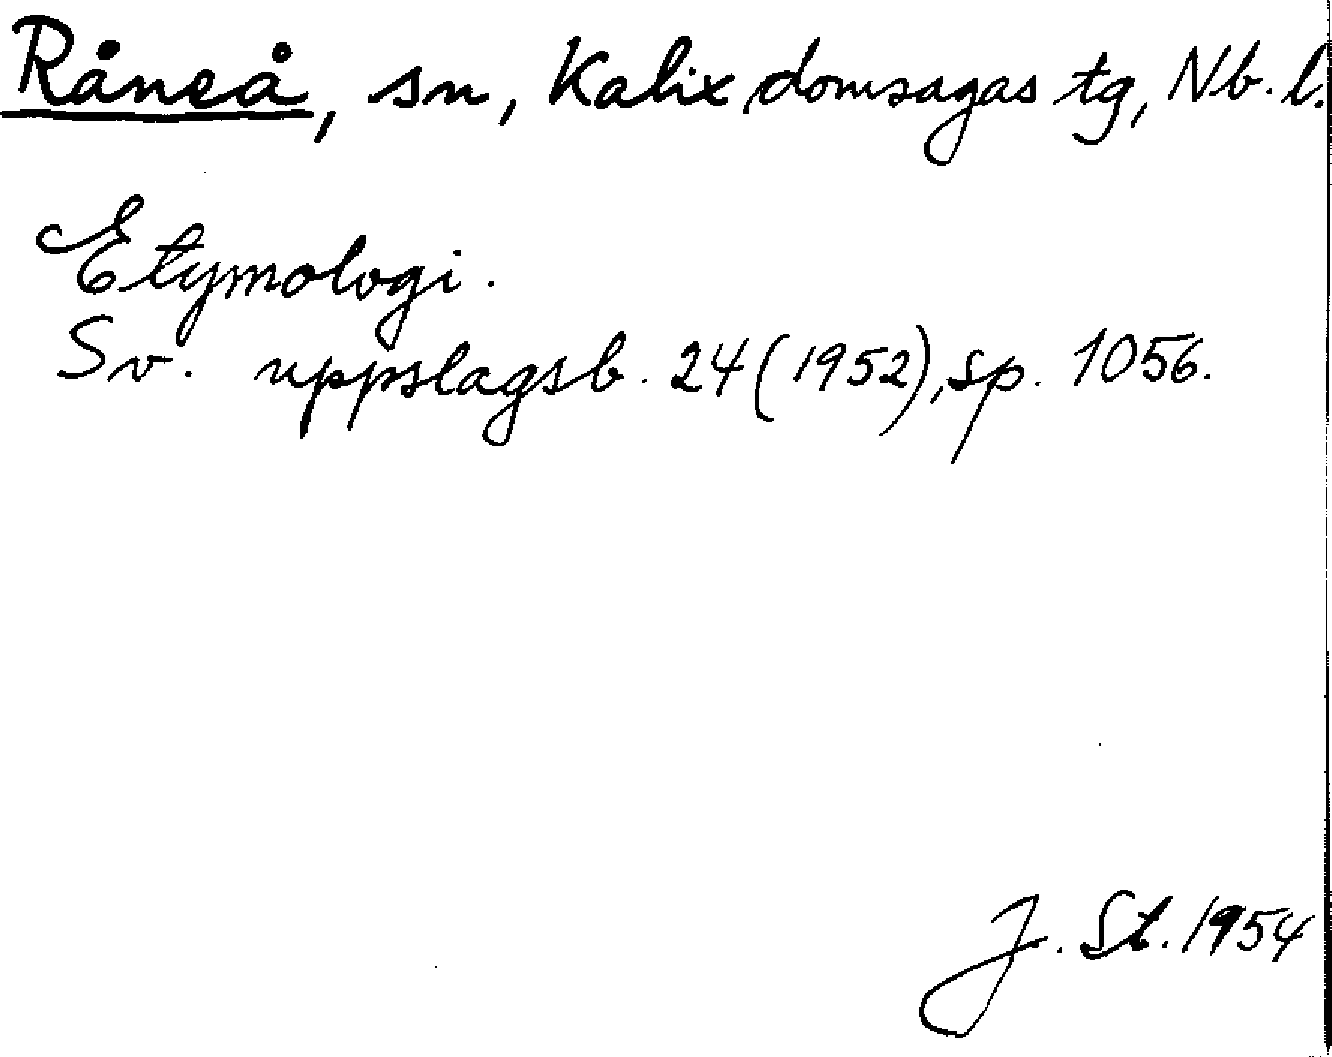 Råneå, sn, Kalix domsagas tg, Nb. l.
Etymologi.
Sv. uppslagsb. 24 (1952), sp. 1056.
J. St. 1954